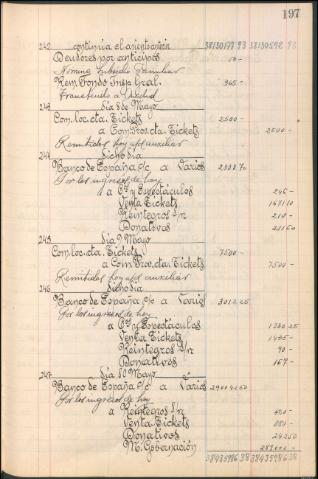 197
242 continua el asiento 38130177 93 38130598 93
Deudores por anticipos 50 -
Nomina Subsidio Familiar
Rem. Fondo Insp. Gral. 365 -
243 día 8 de Mayo
Com. loc. cta. Tickets 2500 -
a Com. Prov. cta. Tickets 2500 -
Remitidos hoy al auxiliar
244 dicho día
Banco de España c/c a Varios
Por los ingresos de hoy
a Cª y Espectáculos 246 -
Venta Tickets
Reintegros s/r 210 -
Donativos
245 día 9 Mayo
Com. loc. cta. Tickets 7500 -
a Com. Prov. cta. Tickets 7500 -
Remitidos hoy al auxiliar
246 dicho día
Banco de España c/c a Varios 3012 25
Por los ingresos de hoy
a Cª y Espectáculos
Venta Tickets 1485 -
Reintegros s/r 90 -
Donativos 167 -
247 día 10 Mayo
Banco de España c/c a Varios 290042 50
Por los ingresos de hoy
a Reintegros s/r
Venta Tickets
Donativos 242 50
M. Gobernación
38435986 38 38435986 38